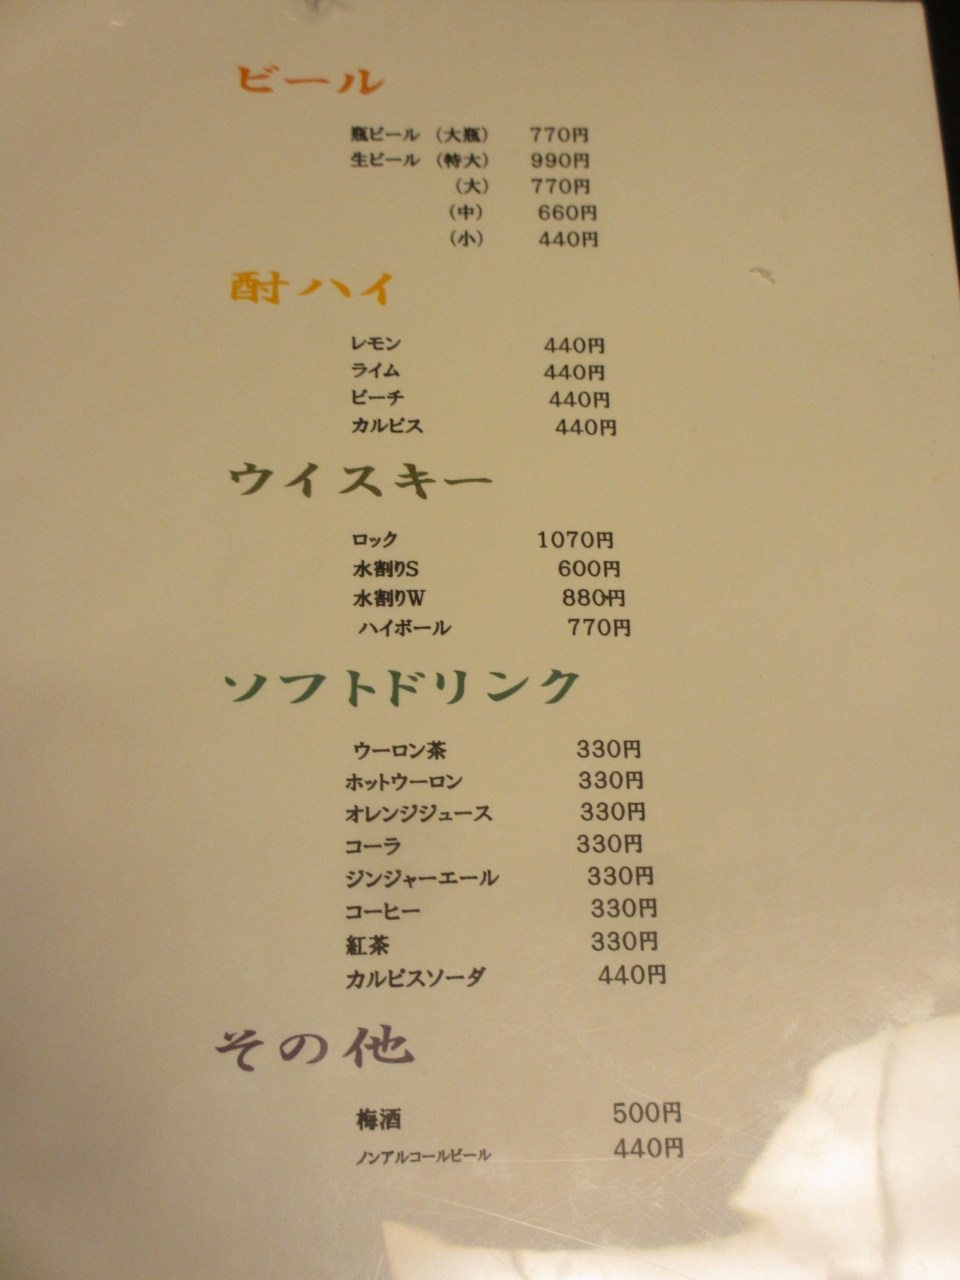 ビール
瓶ビール（大瓶） 770円
生ビール（特大） 990円
（大） 770円
（中） 660円
（小） 440円
酎ハイ
レモン 440円
ライム 440円
ピーチ 440円
カルピス 440円
ウイスキー
ロック 1070円
水割りS 600円
水割りW 880円
ハイボール 770円
ソフトドリンク
ウーロン茶 330円
ホットウーロン 330円
オレンジジュース 330円
コーラ 330円
ジンジャーエール 330円
コーヒー 330円
紅茶 330円
カルピスソーダ 440円
その他
梅酒 500円
ノンアルコールビール 440円